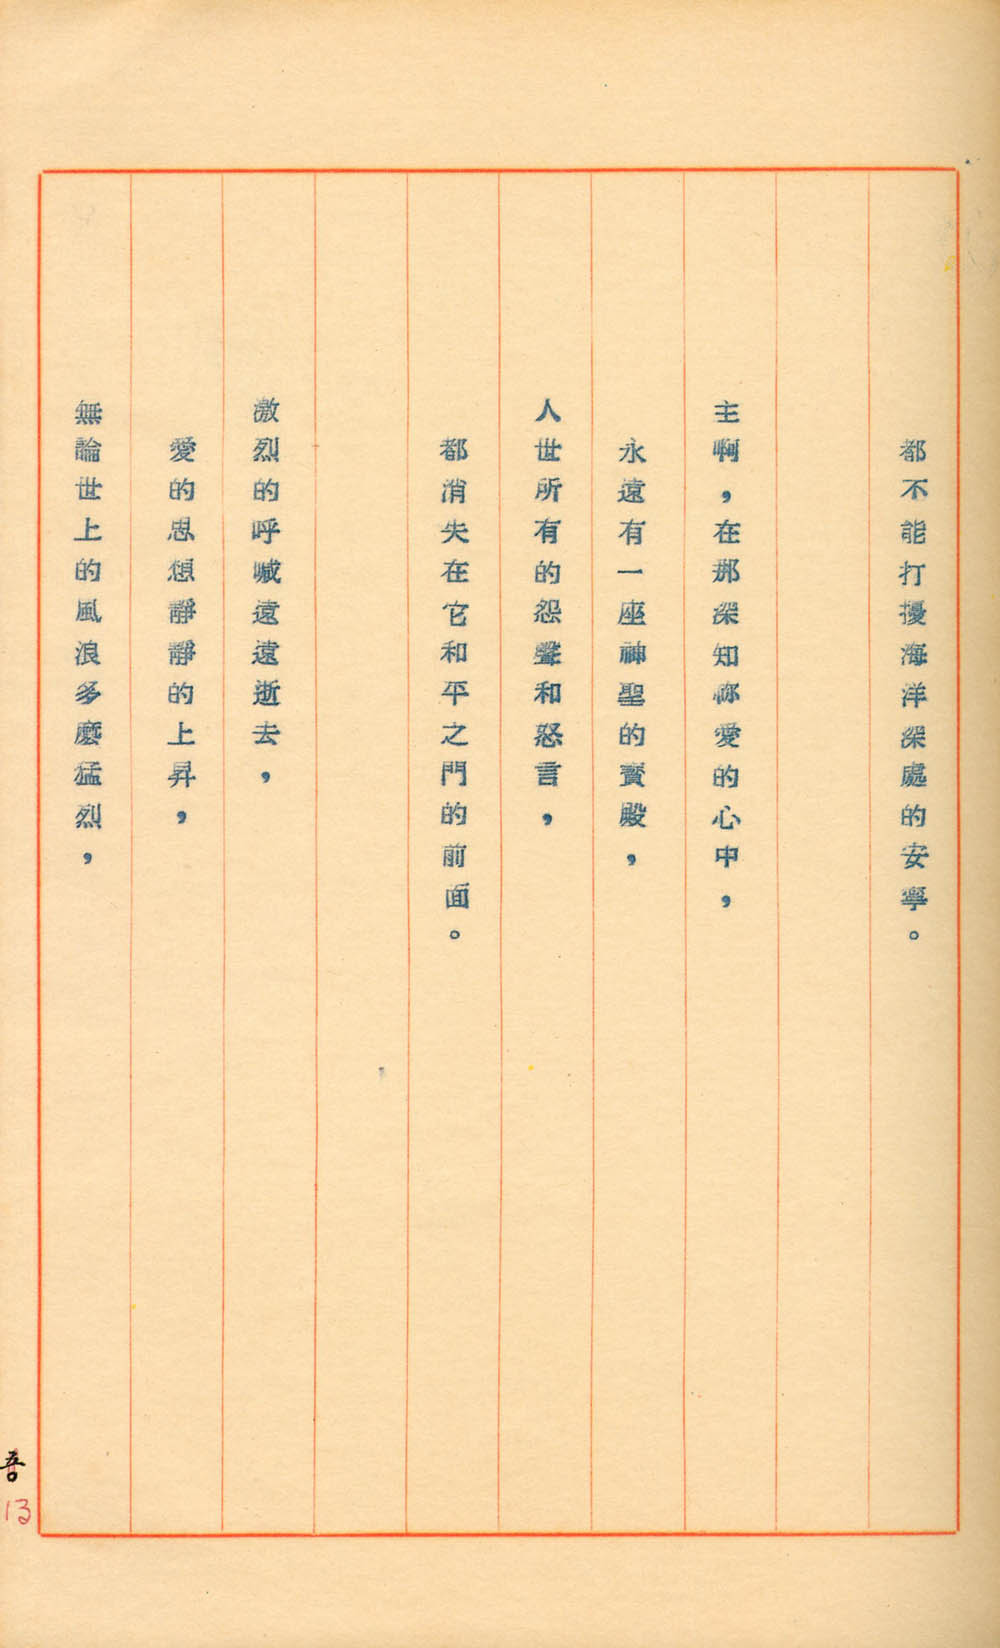 都不能打擾海洋深處的安寧。
主啊，在那深知祢愛的心中，
永遠有一座神聖的寶殿，
人世所有的怨聲和怒言，
都消失在它和平之門的前面。
激烈的呼喊遠遠逝去，
愛的思想靜靜的上昇，
無論世上的風浪多麼猛烈，
吾
13